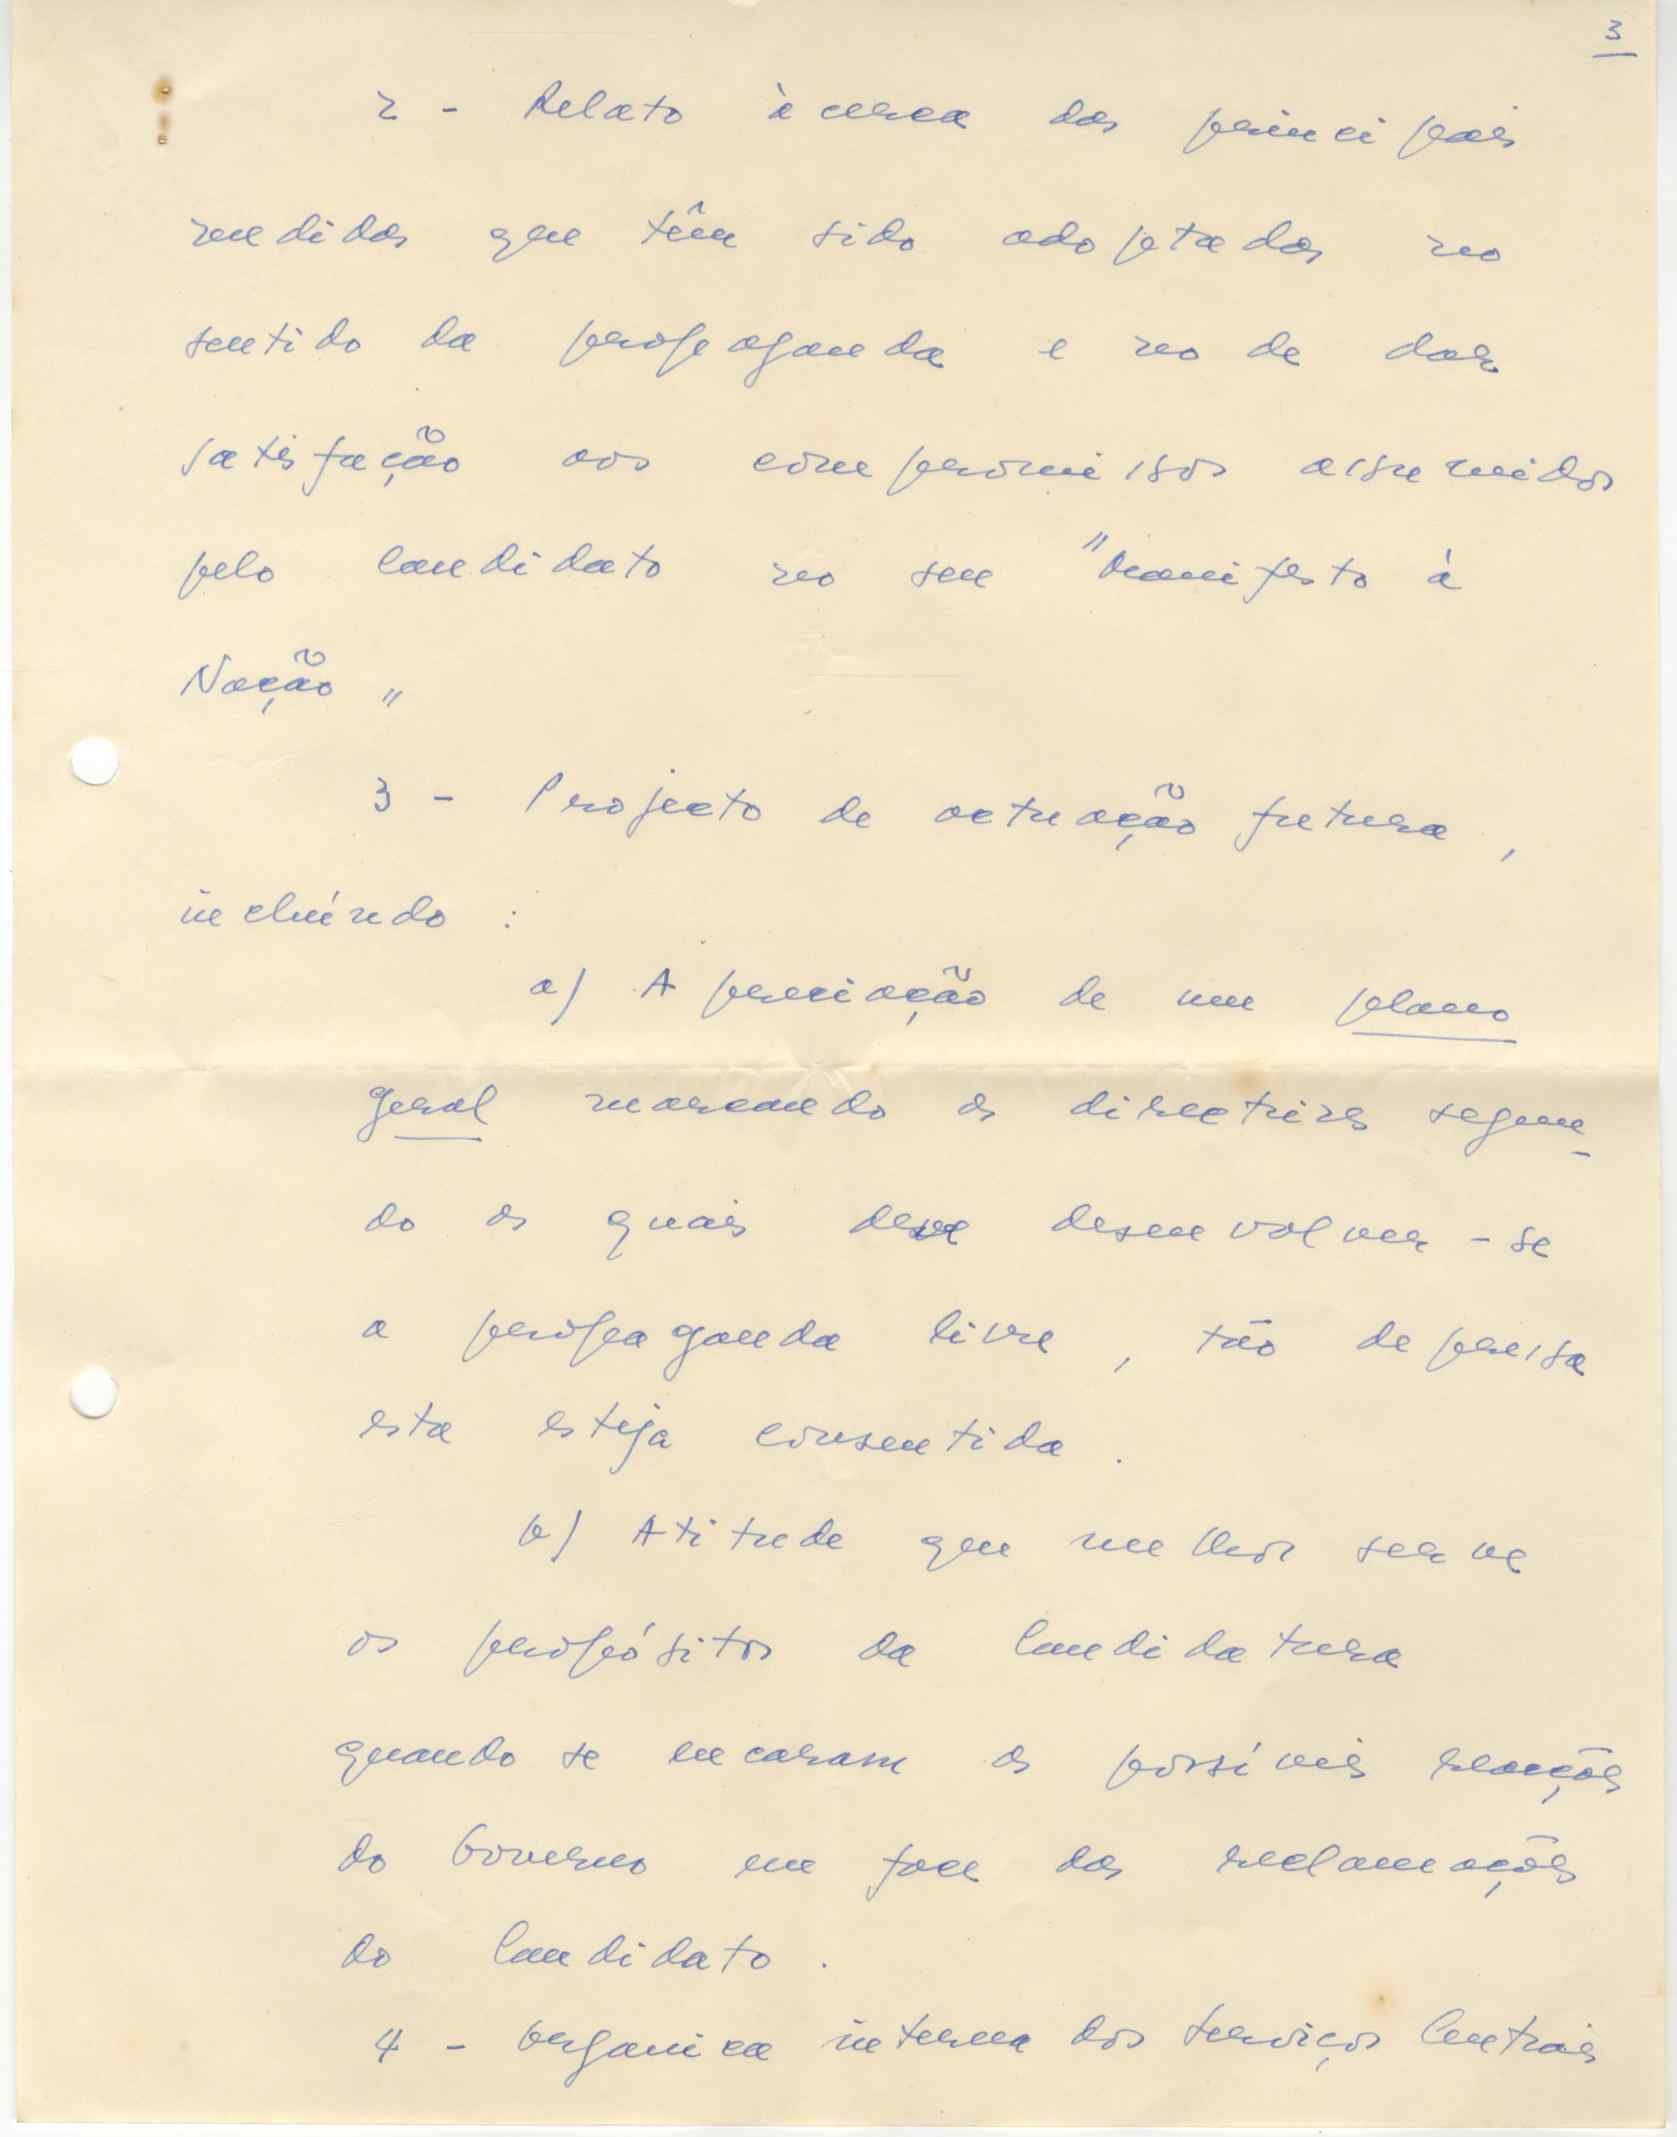 3
2 - Relato àcerca das principais
medidas que têm sido adoptadas no
sentido da propaganda e no de dar
satisfação aos compromissos assumidos
pelo Candidato no seu "Manifesto à
Nação"
3 - Projecto de actuação futura,
incluíndo :
a) Apreciação de um plano
geral marcando as directrizes segun-
do as quais deve desenvolver-se
a propaganda livre, tão depressa
esta esteja consentida.
b) Atitude que melhor serve
os propósitos da Candidatura
quando se encaram as possíveis reacções
do Governo em face das reclamações
do Candidato.
4 - Organica interna dos Serviços Centrais